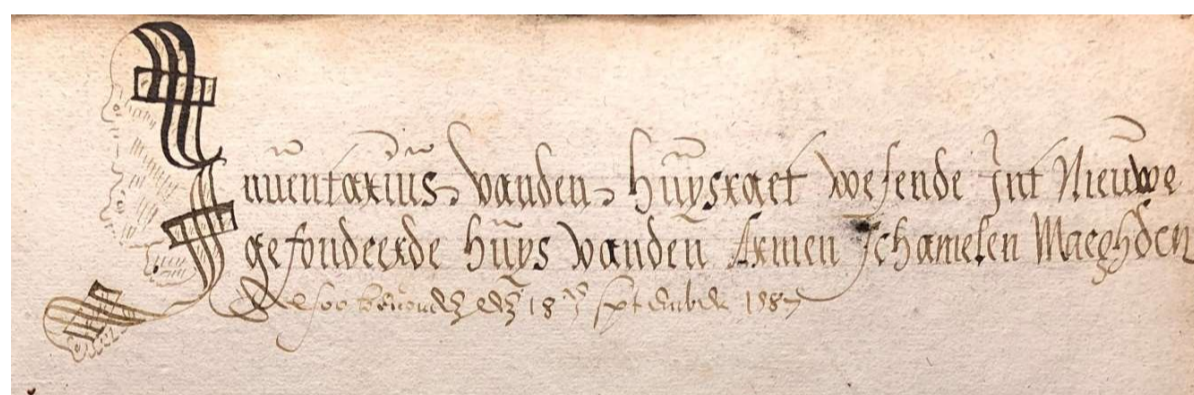 Inuentarius vanden huysraet wesende Int Nieuwe
gefondeerde huys vanden Armen schamelen Maeghden
Alsoo bevonden den 18en september 1587